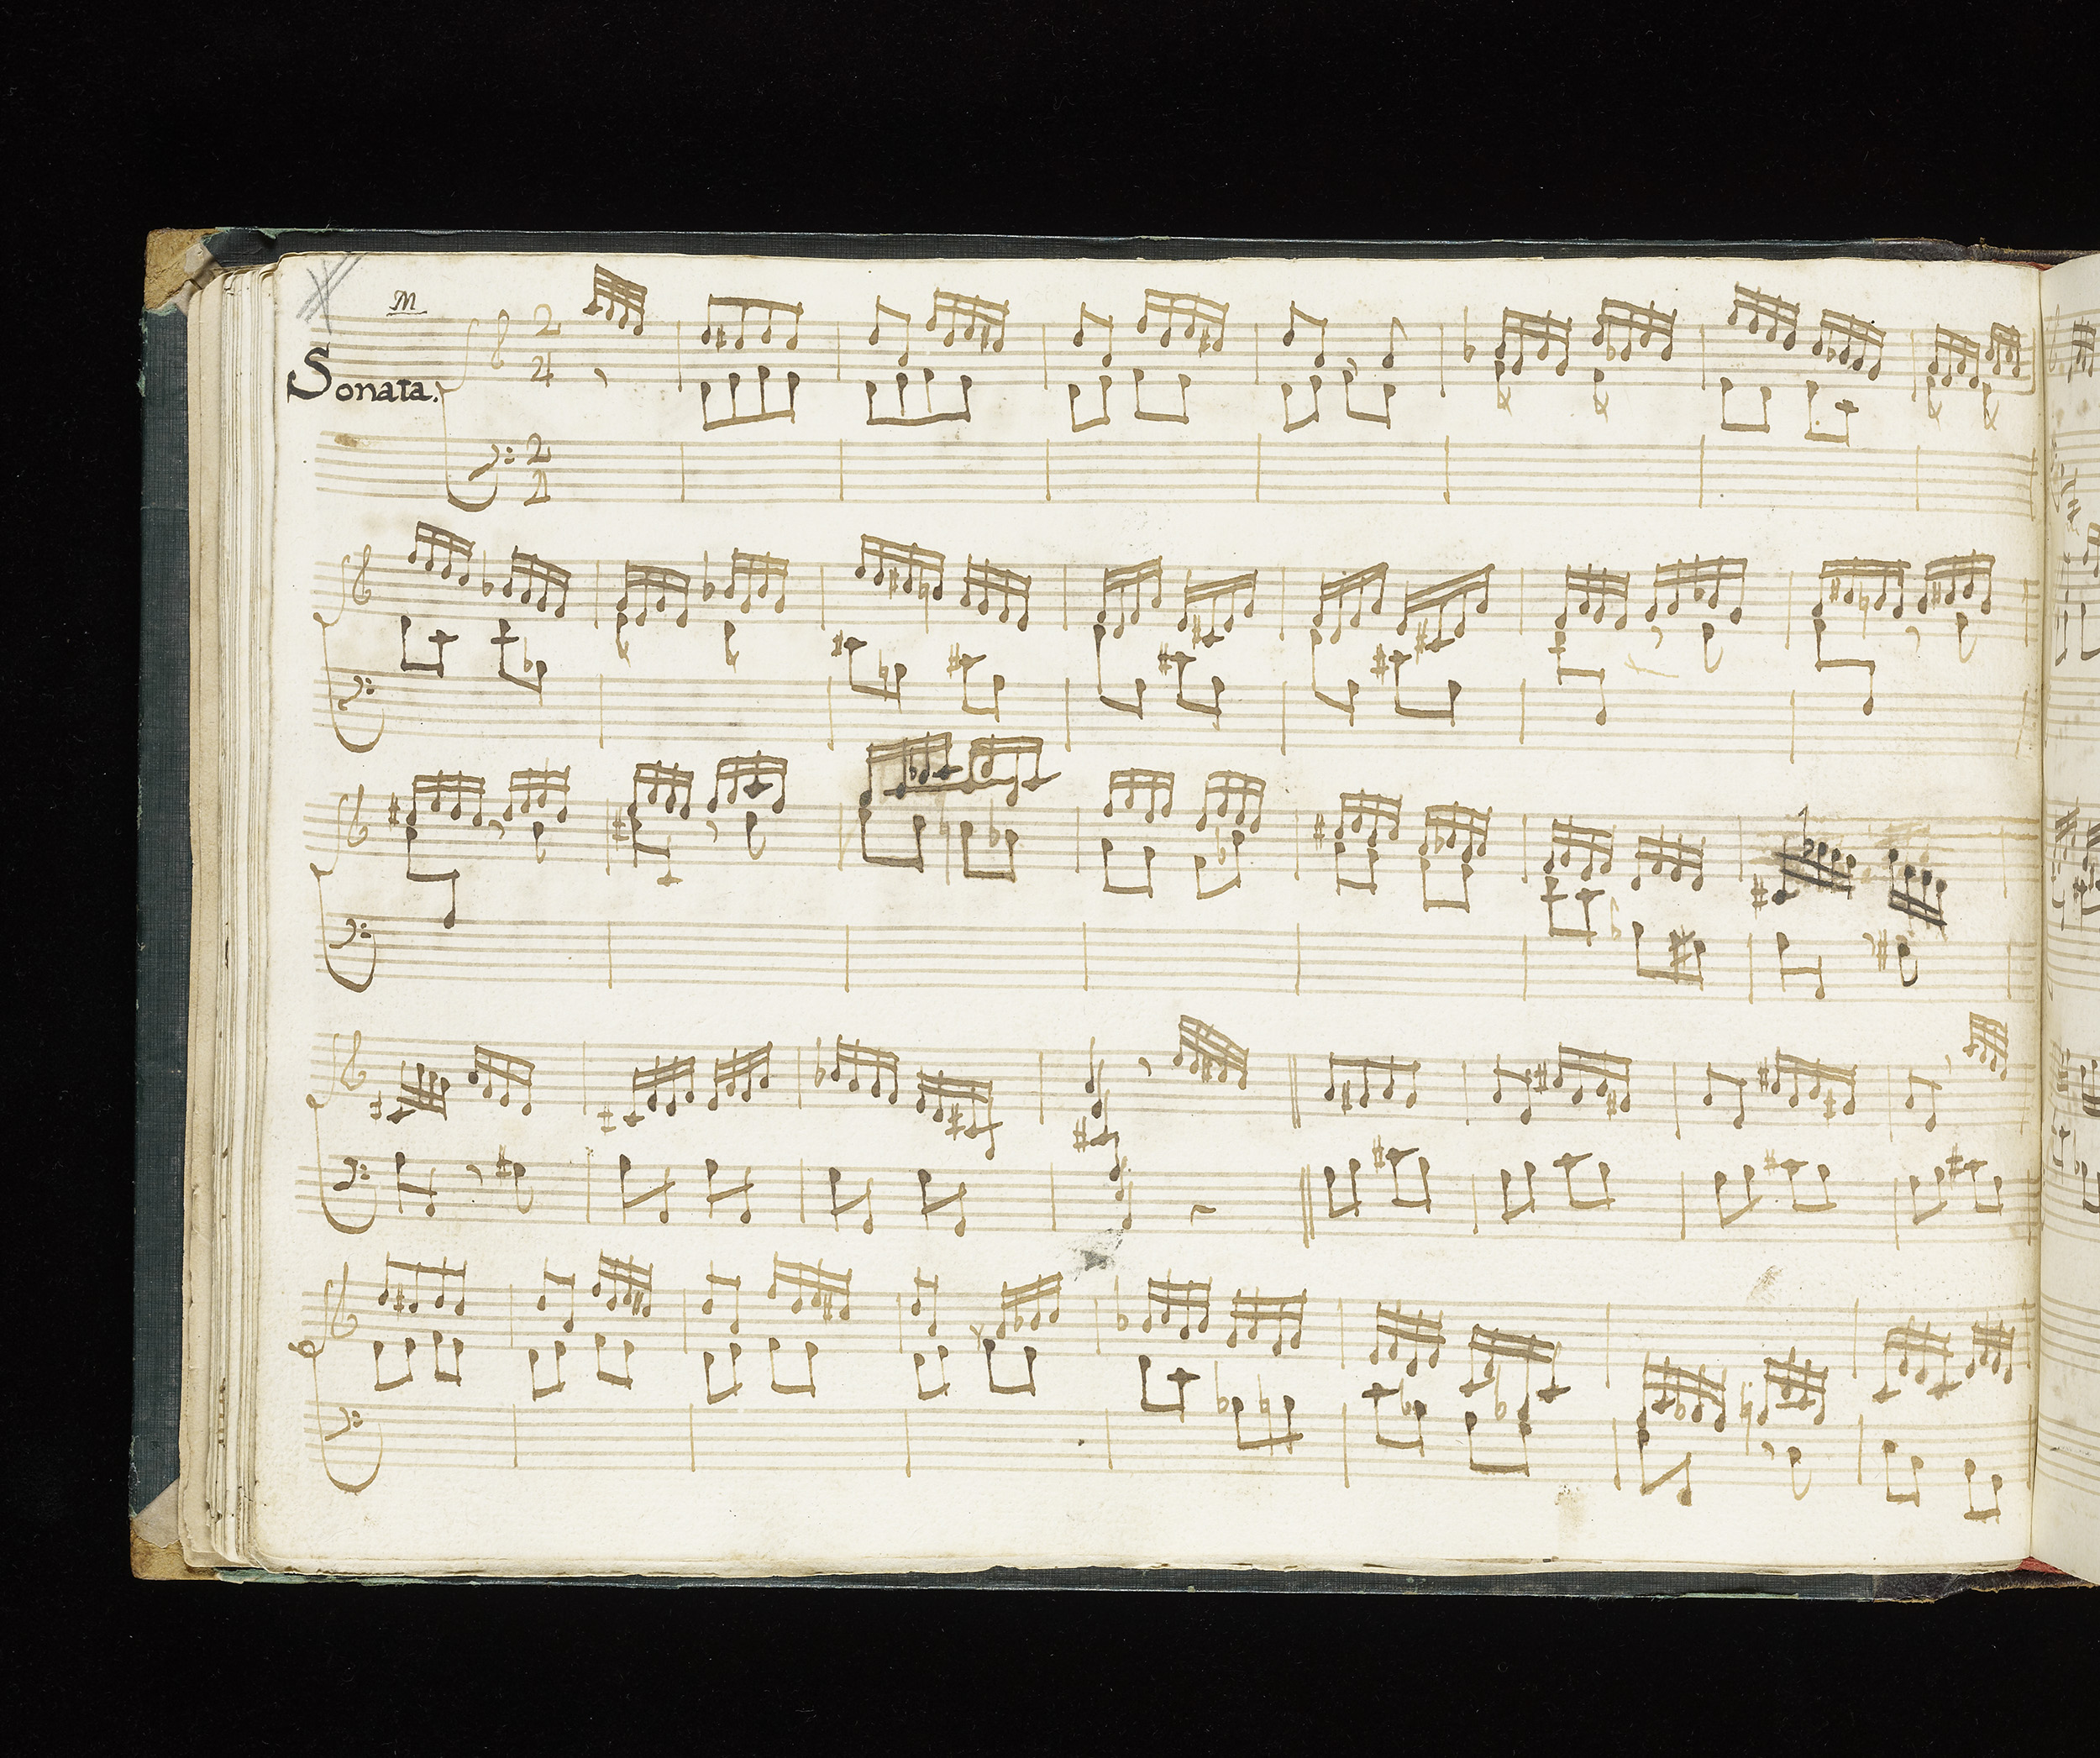 M
Sonata.
2
4
2
4